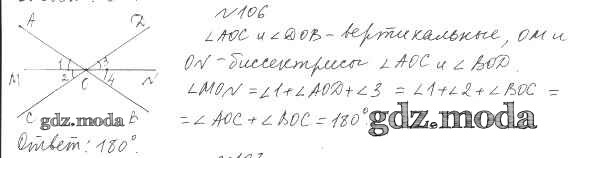 №106
A D
∠AOC и ∠DOB - вертикальные, OM и
1 3
M 2 O 4 N
ON - биссектрисы ∠AOC и ∠BOD.
∠MON = ∠1 + ∠AOD + ∠3 = ∠1 + ∠2 + ∠BOC =
C B
gdz.moda
= ∠AOC + ∠BOC = 180°
gdz.moda
Ответ: 180°.